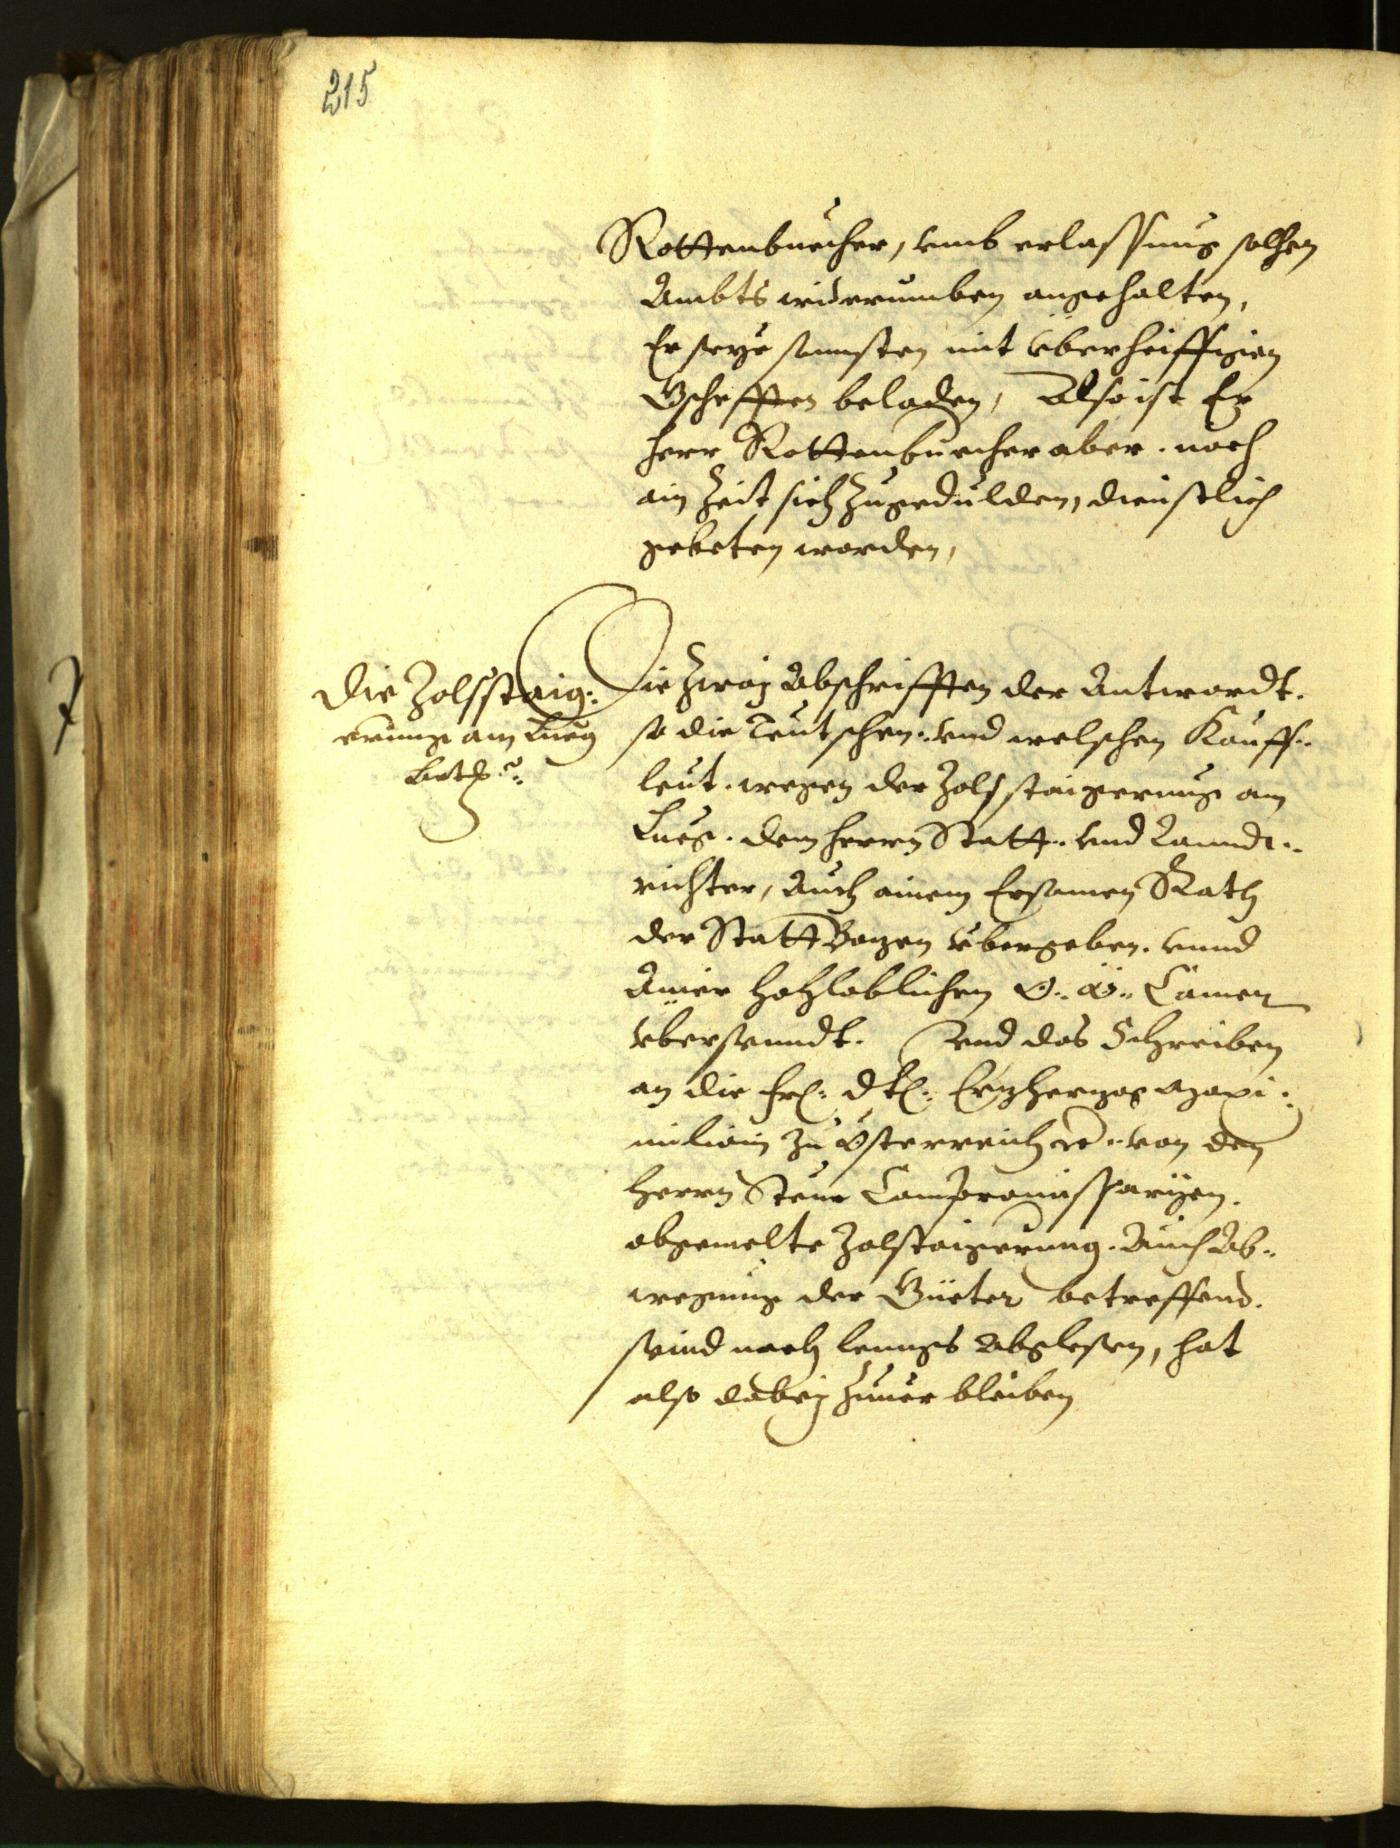 215
Rottenbuecher, vmb erlassung solchen
Ambts widerumben angehalten,
Er seye sonnsten mit vberheiffigen
Gschefften beladen, Also ist Er
herr Rottenbuecher aber noch
ain Zeit sich Zugedulden, dienstlich
gebeten worden,
Die Zolsstaig:
erung am Lueg
betr:
Die Zway Abschrifften der Antwordt.
so die Teutschen. vnd welschen Kauff:
leut. wegen der Zolsstaigerung am
Lueg. dem herrn Statt: vnd Lanndt:
richter, Auch ainem Ersamen Rath
der Statt Bozen vbergeben. vnnd
Ainer hochloblichen O: Ö: Camer
vbersenndt. Vnd das Schreiben
an die Frl: Dtl: Erzherzog Maxi:
milian zu Österreich etc: von den
herrn Steur Compromissaryen.
obgemelte Zolstaigerung. Auch Ab:
wegung der Güeter betreffend.
seind nach lenngs Abglesen, hat
also dabey Zuuerbleiben